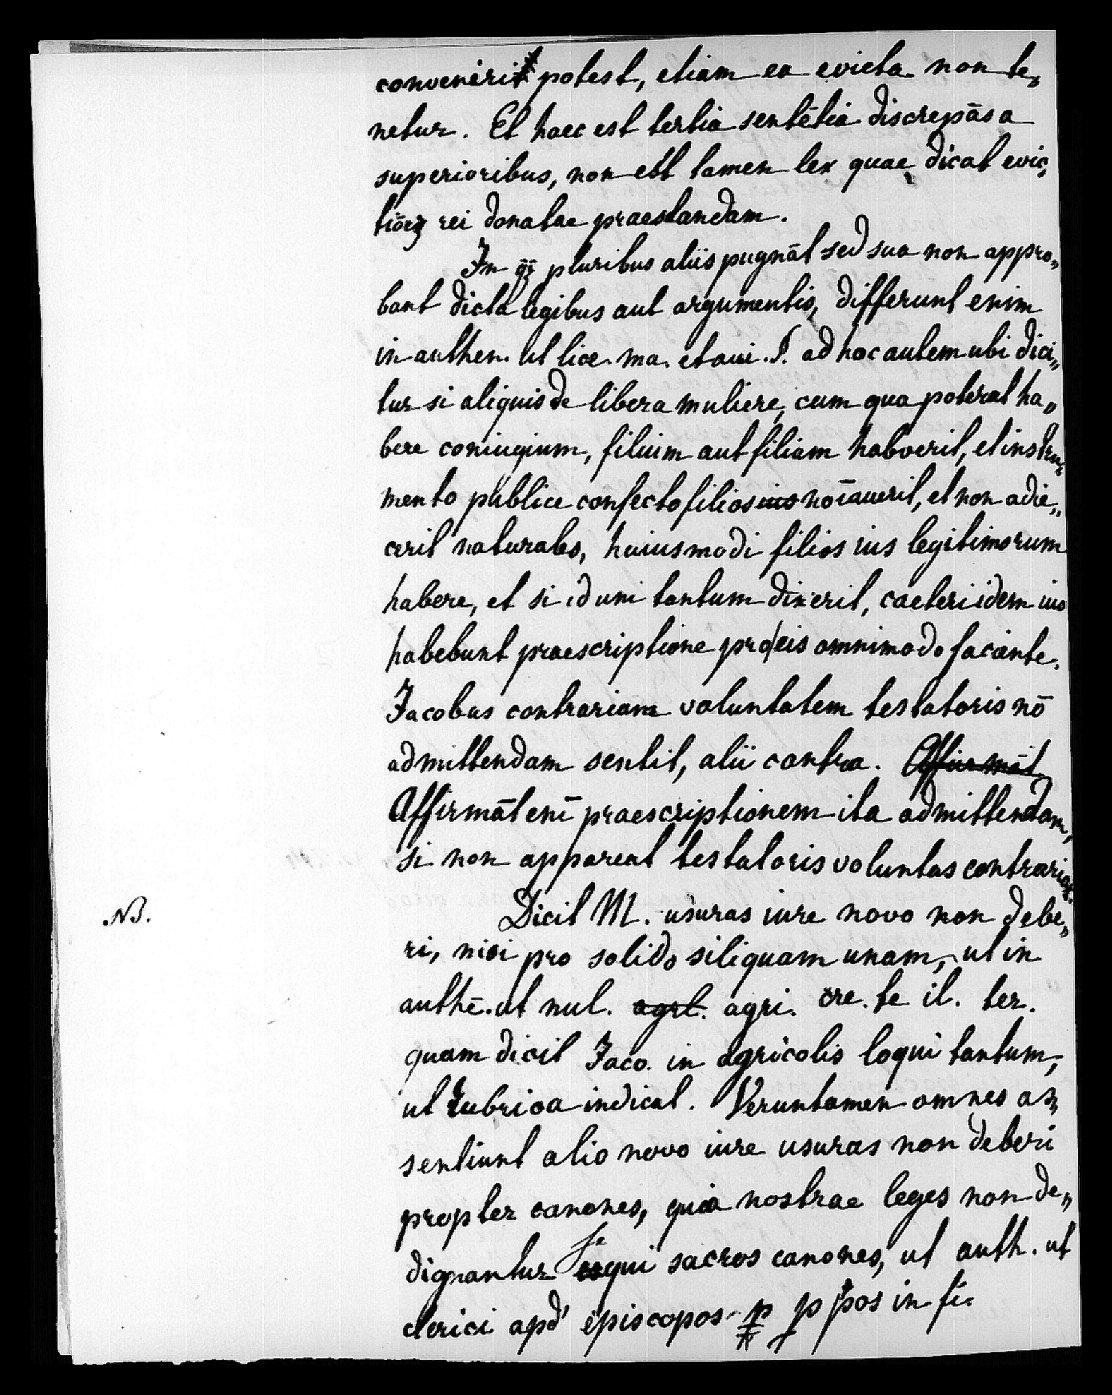 conveniri potest, etiam ea evicta non te„
netur. Et haec est tertia sentētia discrepās a
superioribus, non est tamen lex quae dicat evic„
tiōez rei donatae praestandam.
In qq̃ pluribus aliis pugnāt sed sua non appro„
bant dicta legibus aut argumentis, differunt enim
in authen. ut lice. ma. et aui. §. ad hoc autem ubi dici„
tur si aliquis de libera muliere, cum qua poterat ha„
bere coniugium, filium aut filiam habverit, et instru„
mento publice confecto filios eius noīaverit, et non adie„
cerit naturales, huiusmodi filios ius legitimorum
habere, et si id uni tantum dixerit, caeteri idem ius
habebunt praescriptione pro eis omnimodo faciente.
Jacobus contrariam voluntatem testatoris nō
admittendam sentit, alii contra. Affirmāt
Affirmāt enī praescriptionem ita admittendam,
si non appareat testatoris voluntas contraria.
NB.
Dicit M. usuras iure novo non debe„
ri, nisi pro solido siliquam unam, ut in
authē. ut nul. agrl. agri. cre. te il. ter.
quam dicit Jaco. in agricolis loqui tantum,
ut rubrica indicat. Veruntamen omnes as„
sentiunt alio novo iure usuras non deberi
propter canones, quia nostrae leges non de„
dignantur sequi sacros canones, ut auth. ut
clerici apd' episcopos p p ṗos in fi.